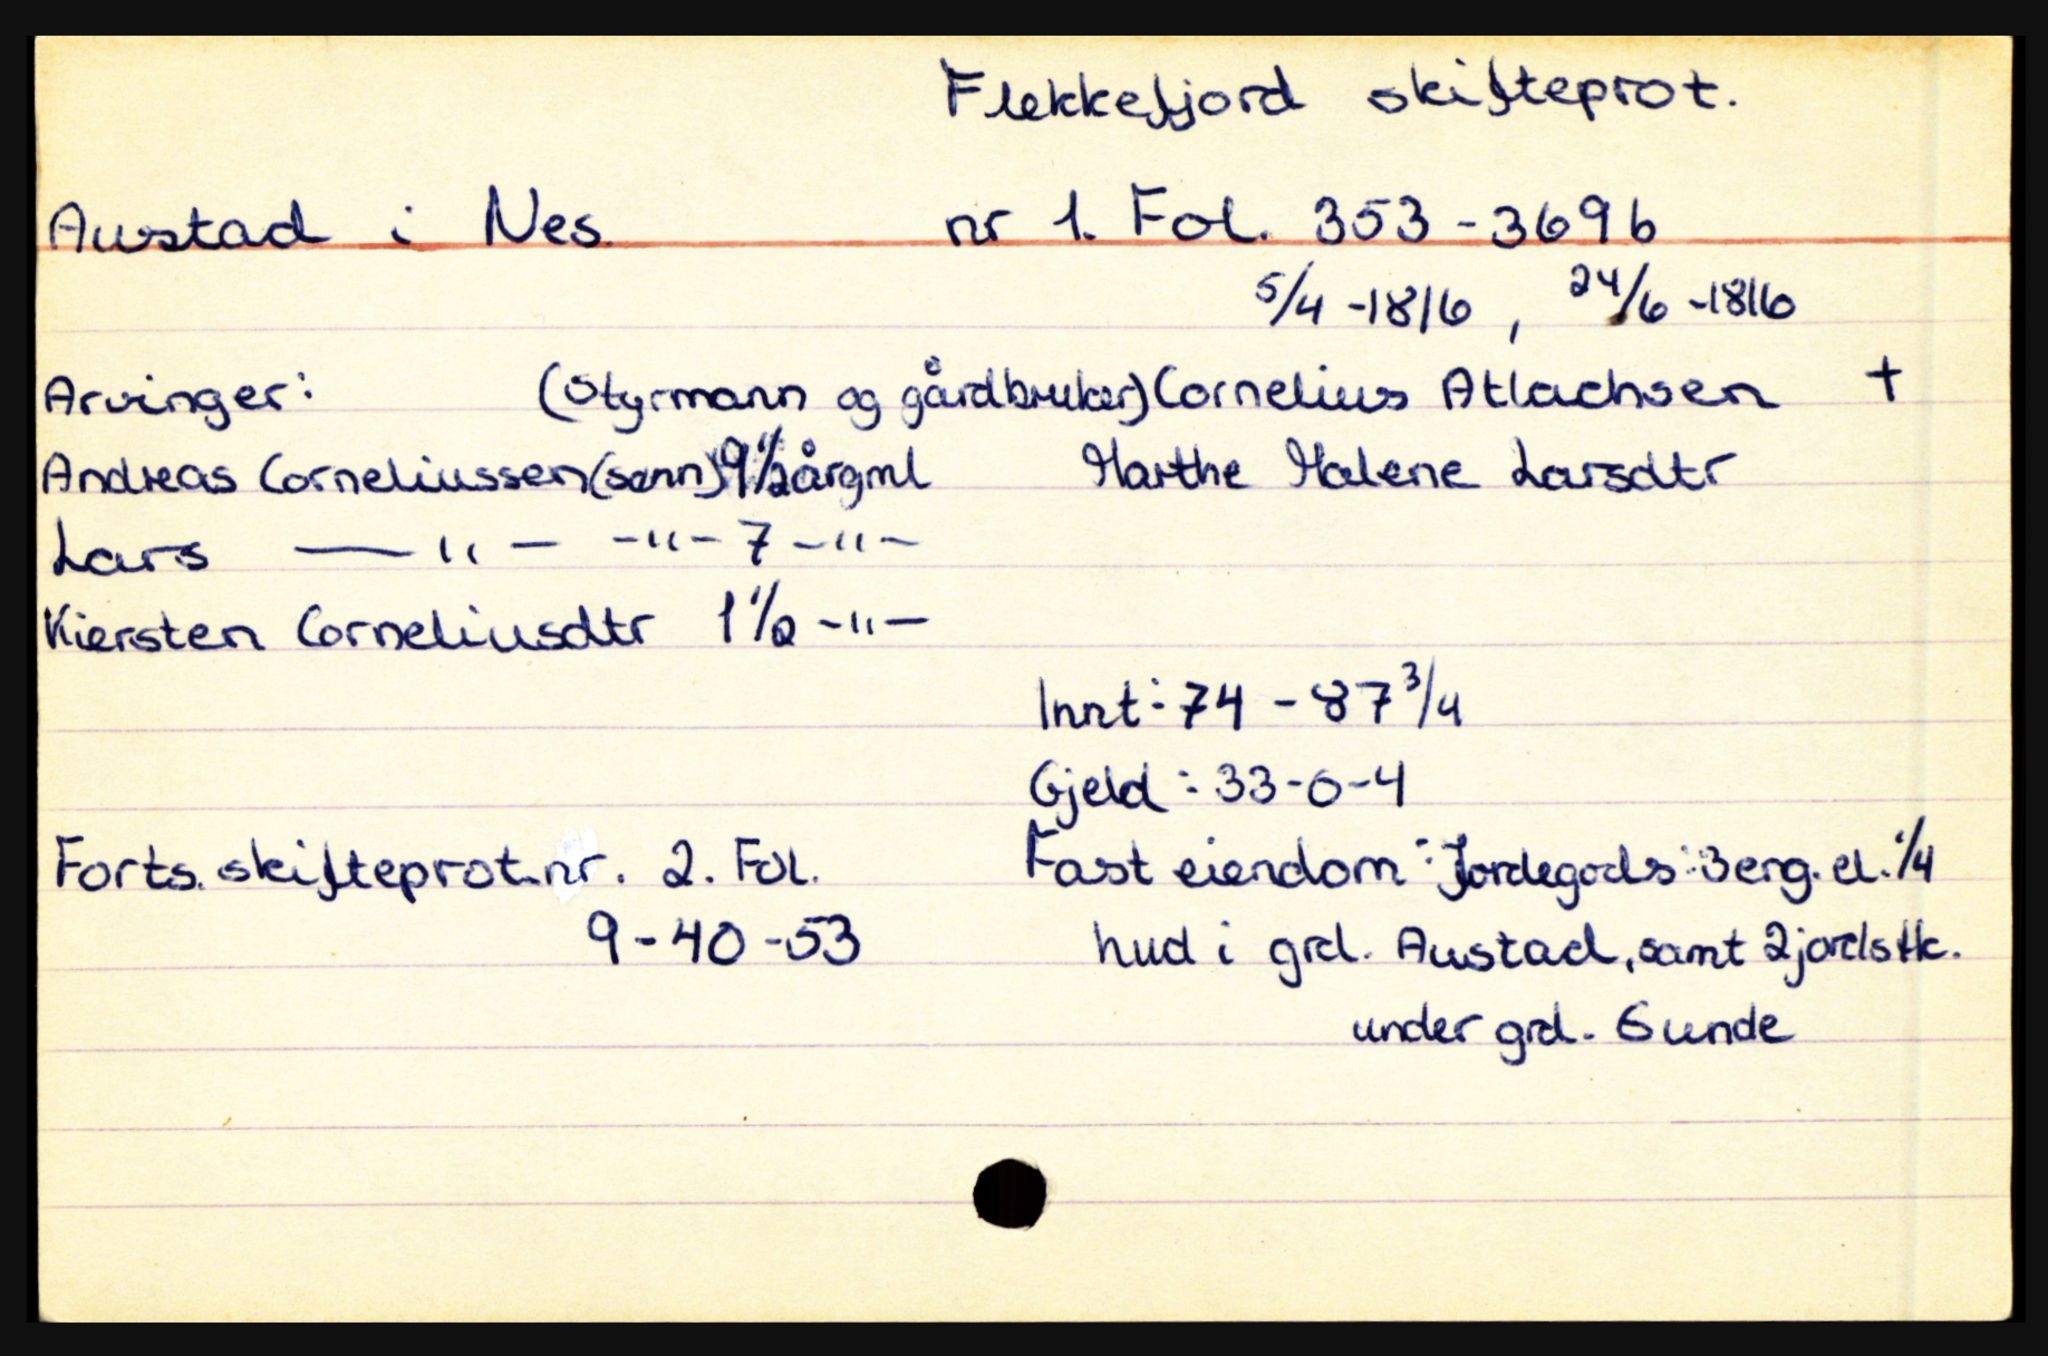 Flekkefjord skifteprot.
Austad i Nes. nr 1. Fol. 353-369b
5/4 -1816, 24/6 -1816
Arvinger: (Styrmann og gårdbruker) Cornelius Atlachsen +
Andreas Corneliussen (sønn) 9 1/2 årgml Marthe Malene Larsdtr
Lars —— " — -"- 7 -"-
Kiersten Corneliusdtr 1 1/2 -"-
Innt: 74 - 87 3/4
Gjeld: 33-0-4
Forts. skifteprot. nr. 2. Fol. Fast eiendom: Jordegods: 3 eng. el. 1/4
9-40-53 hud i grd. Austad, samt 2 jordstk.
under grd. Sunde